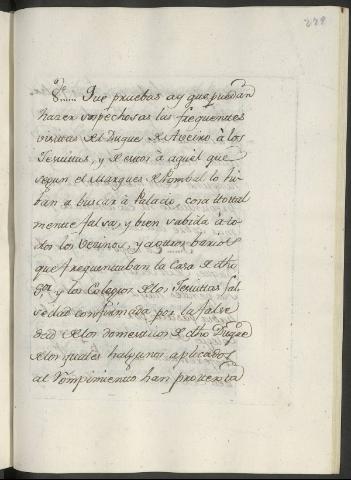 229
8.... Que pruebas ay que puedan
hazer sospechosas las frequentes
visitas del Duque de Aveiro à los
Jesuitas, y de estos à aquel que
segun el Marques de Pombal lo hi-
ban a buscar à Palacio, cosa total
mente falsa, y bien sabida à to-
dos los Vezinos, y a otros barios
que frequentaban la Casa de dho
y los Colegios de los Jesuitas fal
sedad confirmada por la false
dad de los domesticos de dho Duque
de los quales halgunos aplicados
al Rompimiento han protesta